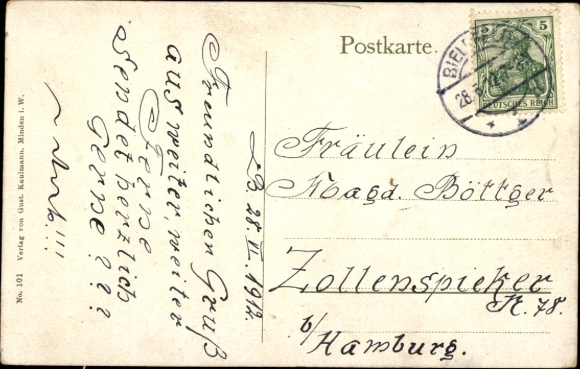 Postkarte.
5
DEUTSCHES REICH
BIEL
28.
Fräulein
Magd. Böttger
Zollenspieker
K. 78.
b/
Hamburg.
B 28. VI. 1912.
Freundlichen Gruß
aus weiter, weiter
Ferne
Sendet herzlich
Gerne ? ? ?
!!!
No. 101 Verlag von Gust. Kaulmann, Minden i. W.